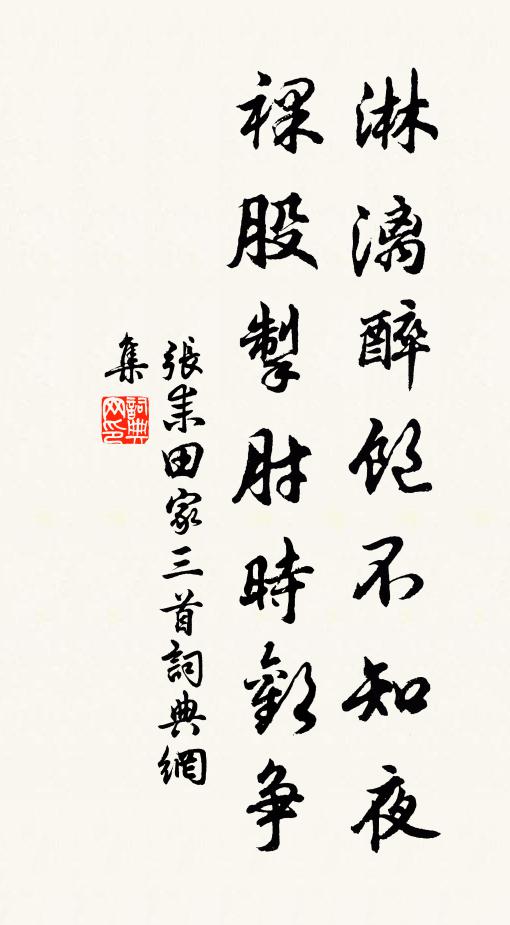 淋漓醉飽不知夜
裸股掣肘時歡爭
張耒田家三首詞典網
集
詞典网印